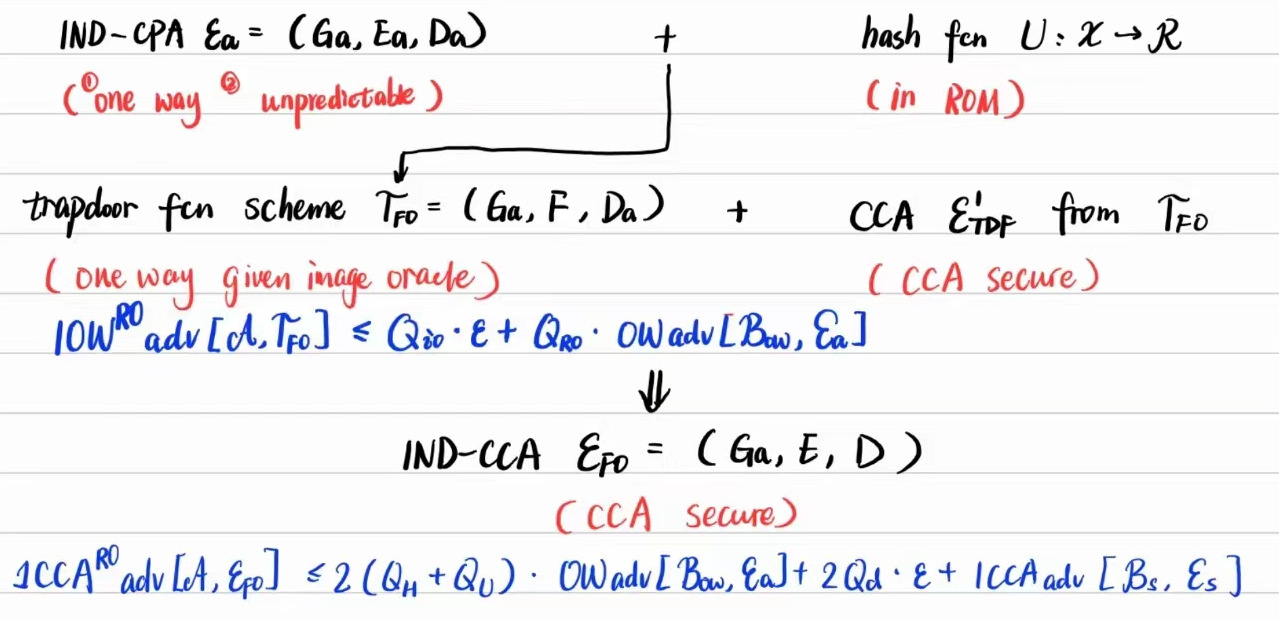 IND-CPA Ɛa = (Ga, Ea, Da) + hash fcn U : 𝒳 → ℛ
(①one way ② unpredictable) (in ROM)
trapdoor fcn scheme 𝒯FO = (Ga, F, Da) + CCA Ɛ'TDF from 𝒯FO
(one way given image oracle) (CCA secure)
IOW^RO adv[𝒜, 𝒯FO] ≤ Qio · ε + QRO · OWadv[Bow, Ɛa]
⇓
IND-CCA ƐFO = (Ga, E, D)
(CCA secure)
1CCA^RO adv[𝒜, ƐFO] ≤ 2(QH + QU) · OWadv[Bow, Ɛa] + 2Qd · ε + 1CCAadv [Bs, Ɛs]